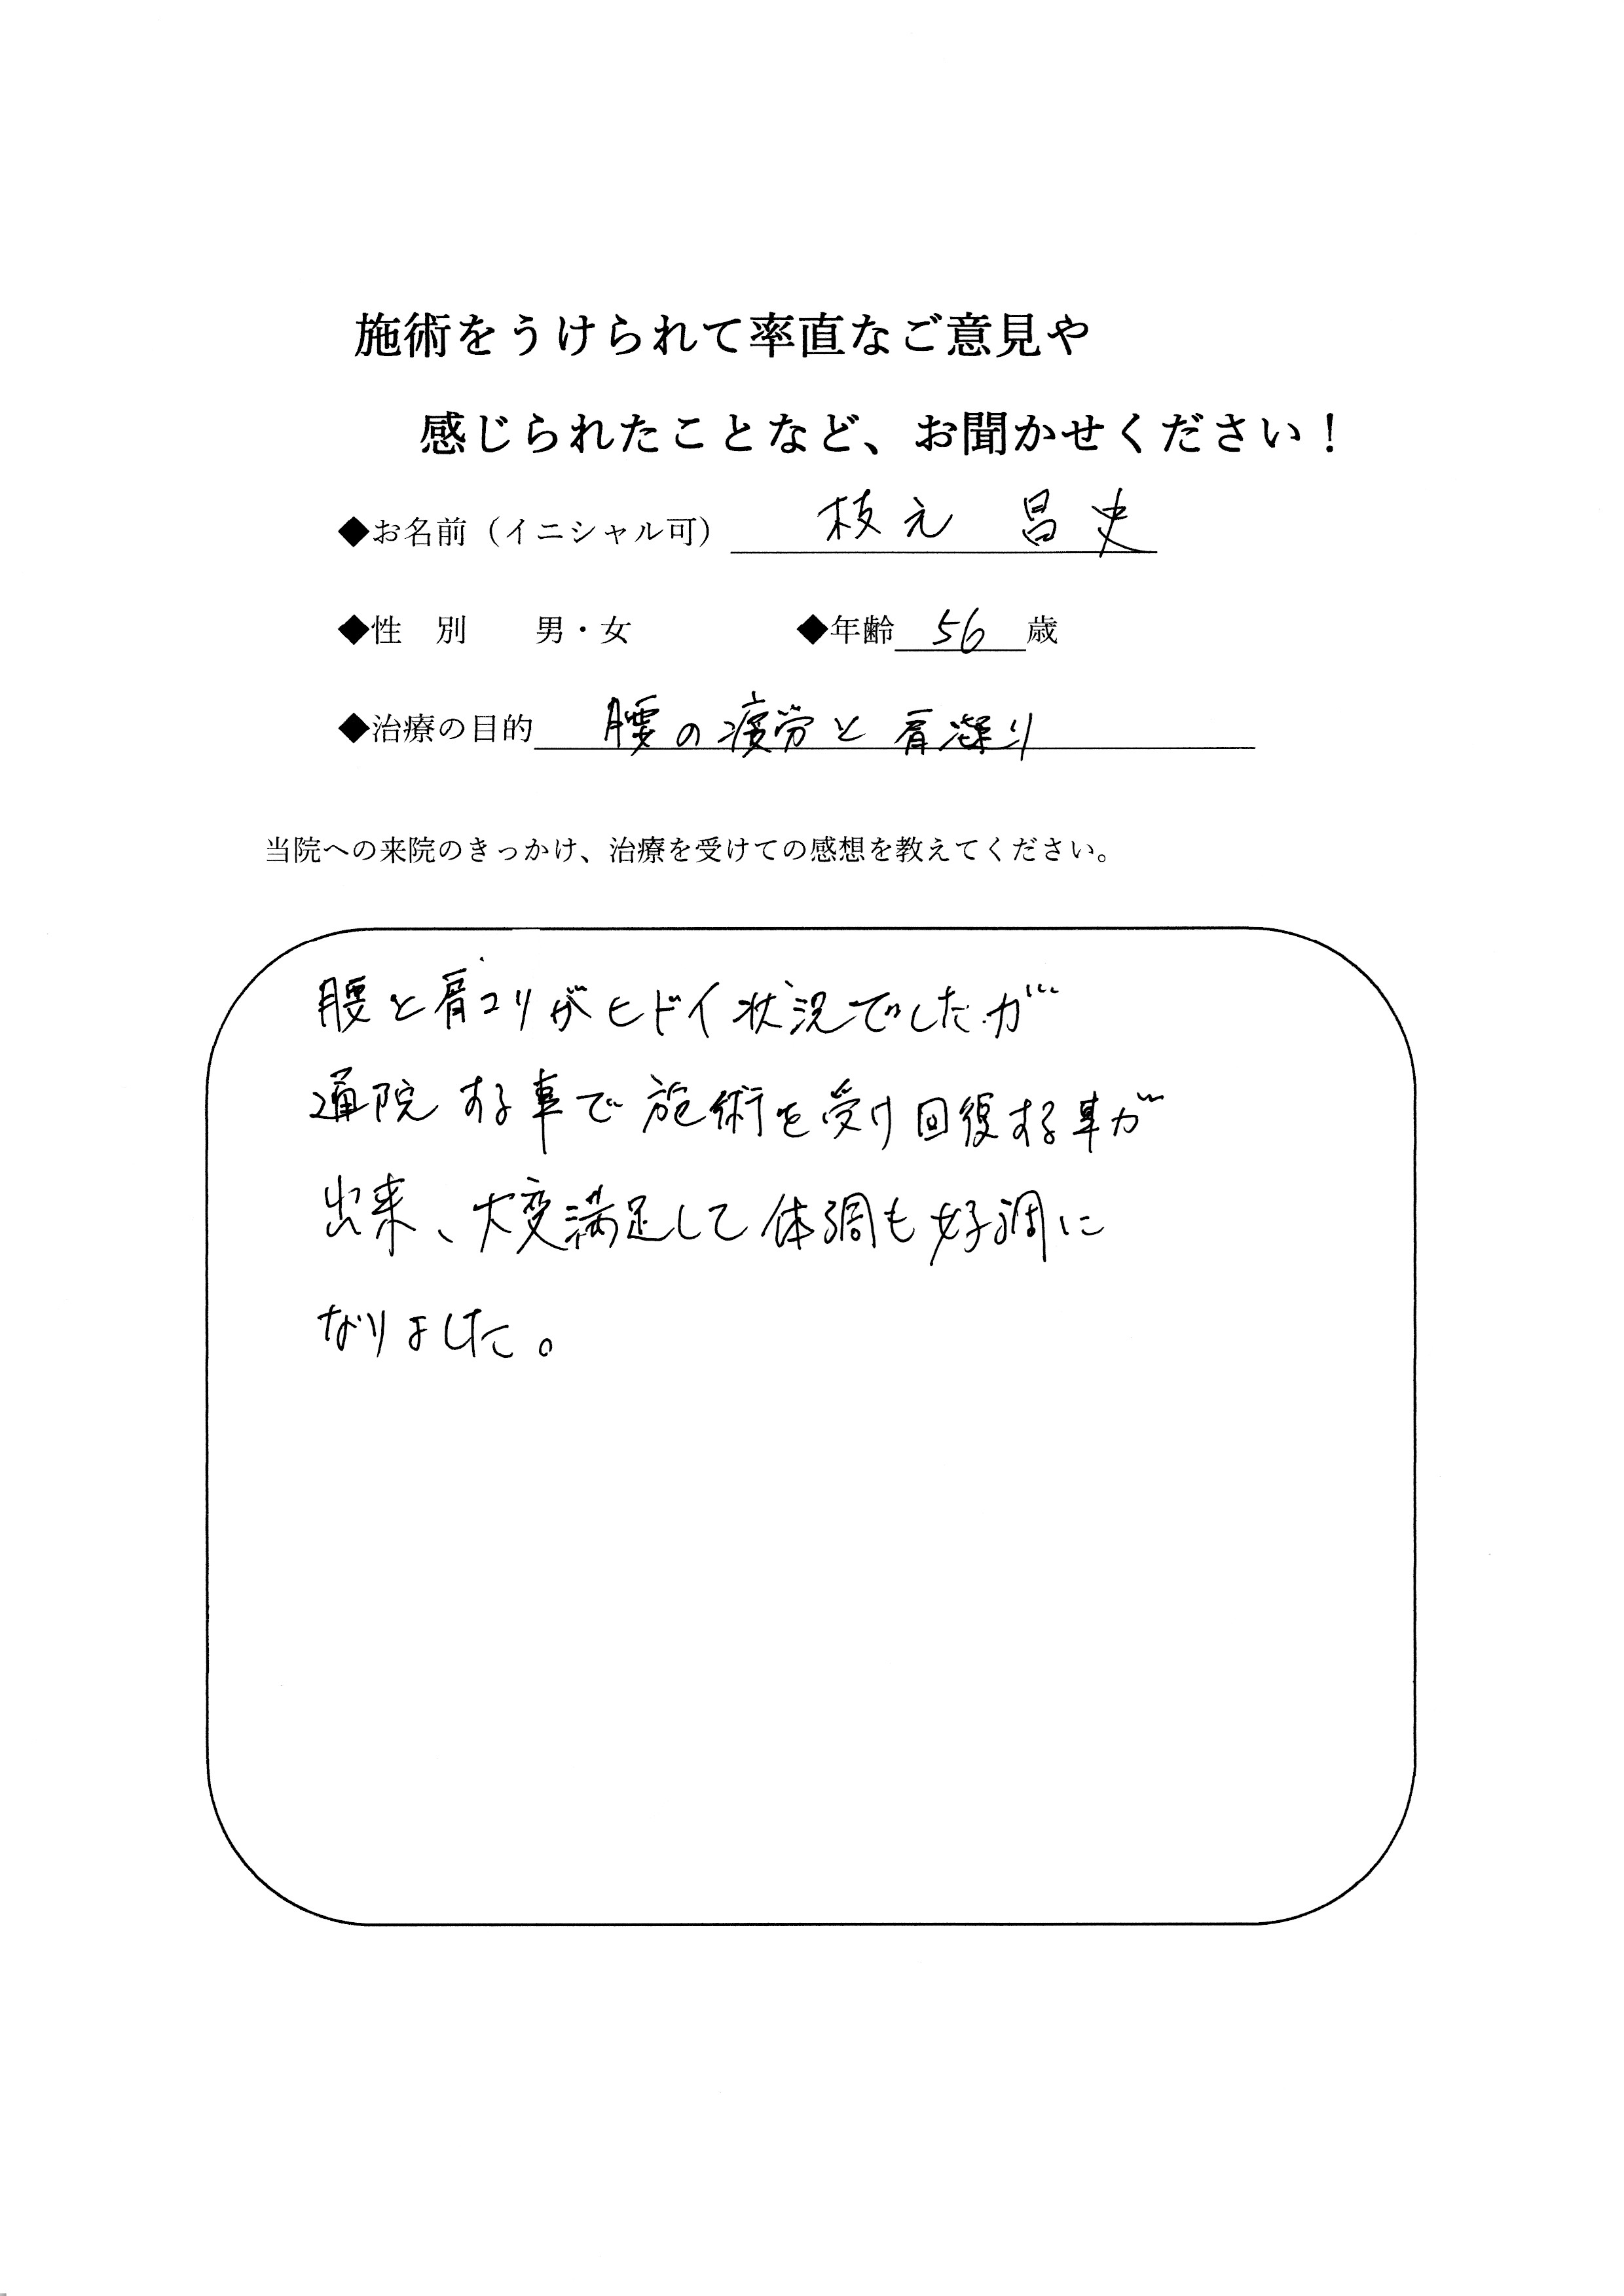 施術をうけられて率直なご意見や
感じられたことなど、お聞かせください！
◆お名前（イニシャル可） 枝元 昌史
◆性 別 男・女 ◆年齢 56 歳
◆治療の目的 腰の疲労と肩凝り
当院への来院のきっかけ、治療を受けての感想を教えてください。
腰と肩コリがヒドイ状況でしたが
通院する事で施術を受け回復する事が
出来、大変満足して体調も好調に
なりました。